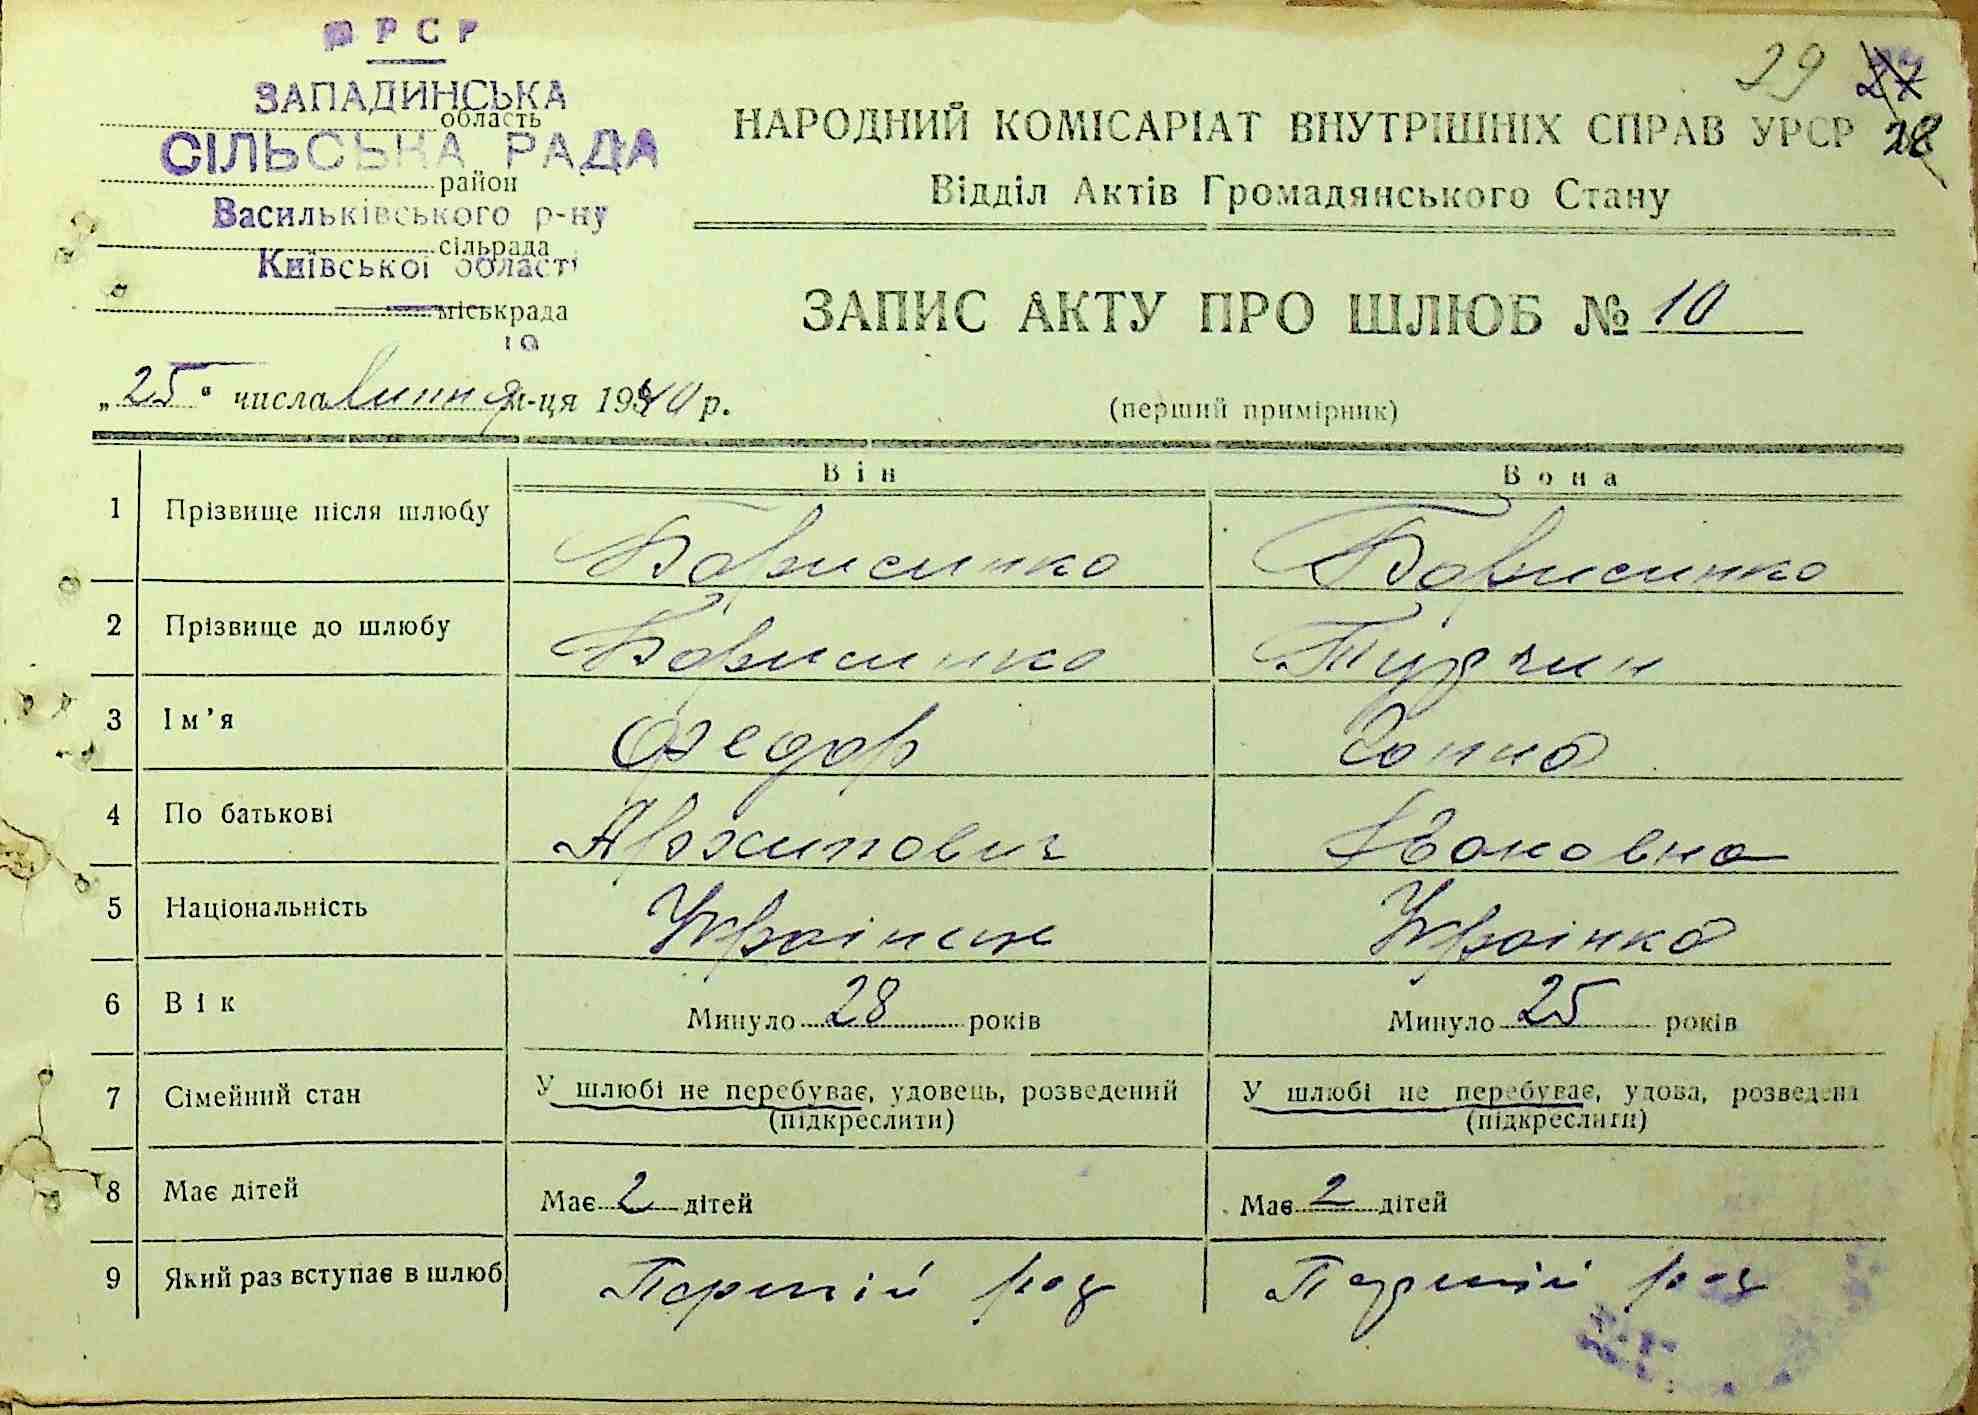 УРСР
29 27
ЗАПАДИНСЬКА
область
СІЛЬСЬКА РАДА
район
Васильківського р-ну
сільрада
Київської області
міськрада
19
НАРОДНИЙ КОМІСАРІАТ ВНУТРІШНІХ СПРАВ УРСР 28
Відділ Актів Громадянського Стану
ЗАПИС АКТУ ПРО ШЛЮБ № 10
„25“ числа липня м-ця 1940 р.
(перший примірник)
Він Вона
1 Прізвище після шлюбу Борисинко Борисинко
2 Прізвище до шлюбу Борисинко
3 Ім’я Федор Ганна
4 По батькові Архипович Івановна
5 Національність Украінец Украінка
6 Вік Минуло 28 років Минуло 25 років
7 Сімейний стан У шлюбі не перебуває, удовець, розведений У шлюбі не перебуває, удова, розведена
(підкреслити) (підкреслити)
8 Має дітей Має 2 дітей Має 2 дітей
9 Який раз вступає в шлюб Першій раз Першій раз